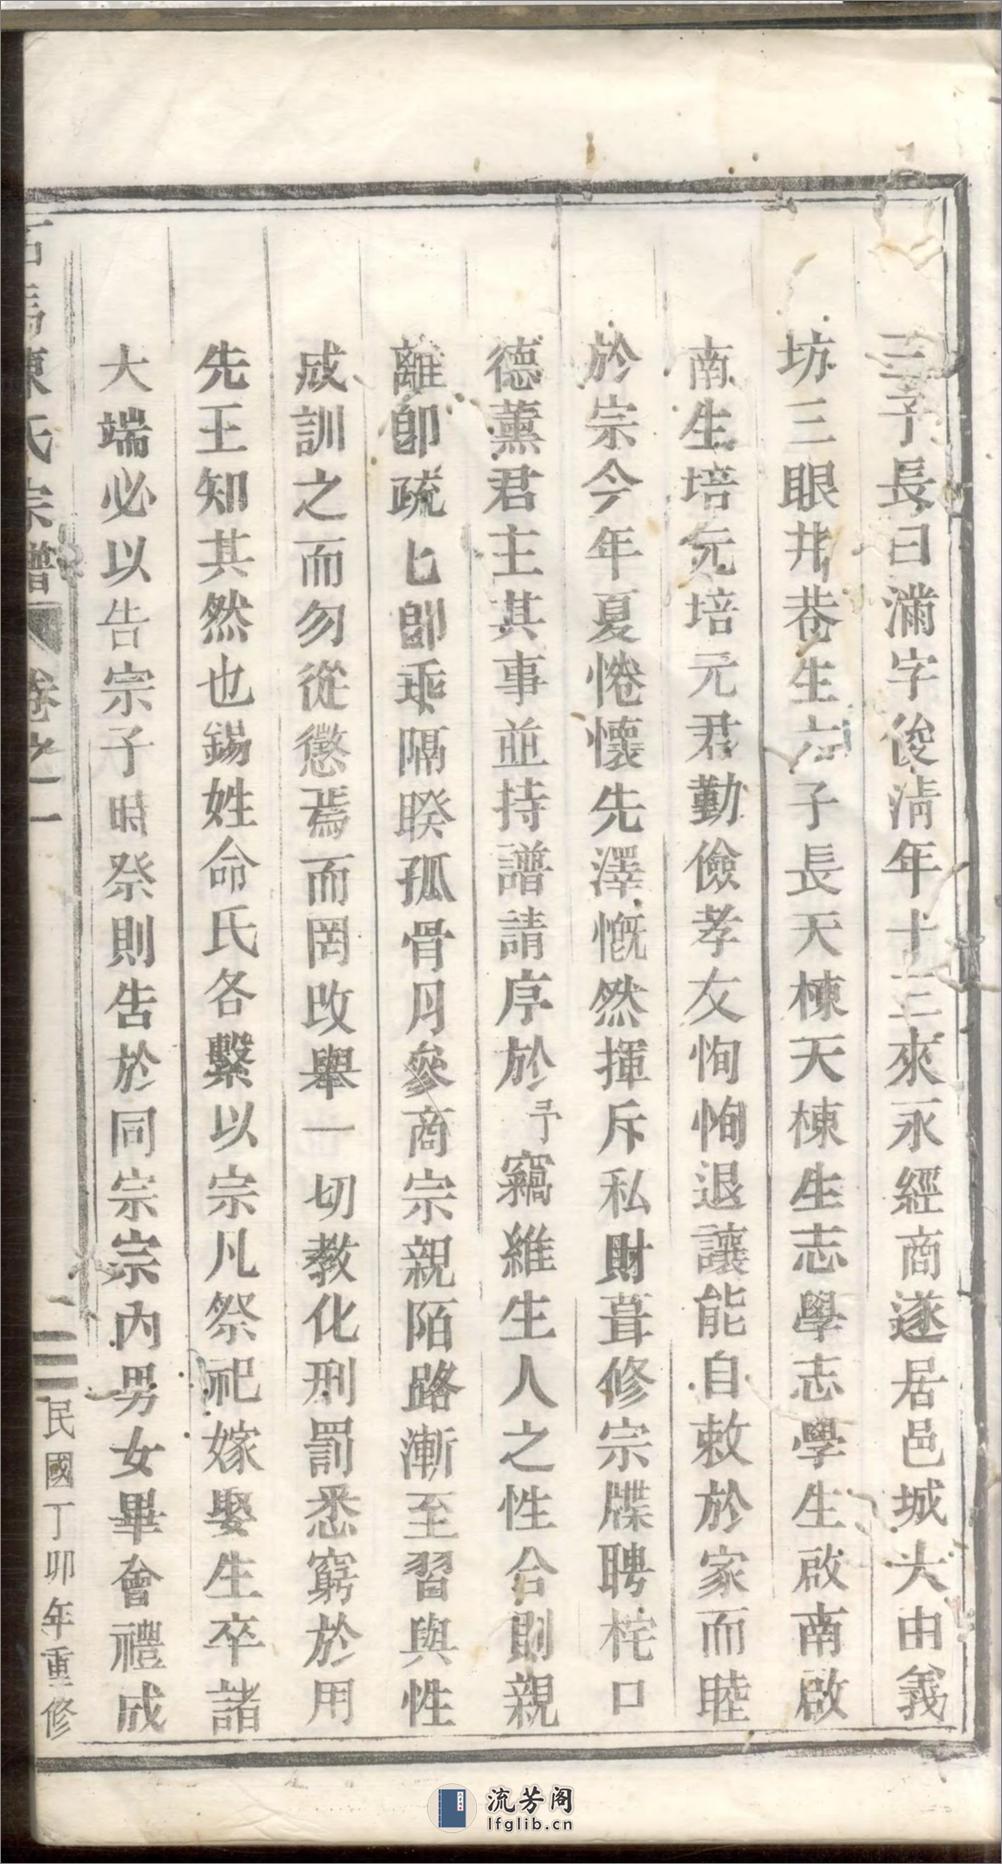 三子長曰滿字俊淸年十三來永經商遂居邑城大由義
坊三眼井巷生六子長天棟天棟生志學志學生啟南啟
南生培元培元君勤儉孝友恂恂退讓能自敕於家而睦
於宗今年夏惓懷先澤慨然揮斥私財葺修宗牒聘柁口
德薰君主其事並持譜請序於予竊維生人之性合則親
離卽疏匕卽乖隔暌孤骨月參商宗親陌路漸至習與性
成訓之而勿從懲焉而罔改舉一切教化刑罰悉窮於用
先王知其然也錫姓命氏各繫以宗凡祭祀嫁娶生卒諸
大端必以告宗子時祭則告於同宗宗內男女畢會禮成
石馬陳氏宗譜 卷之一 民國丁卯年重修
流芳阁
lfglib.cn